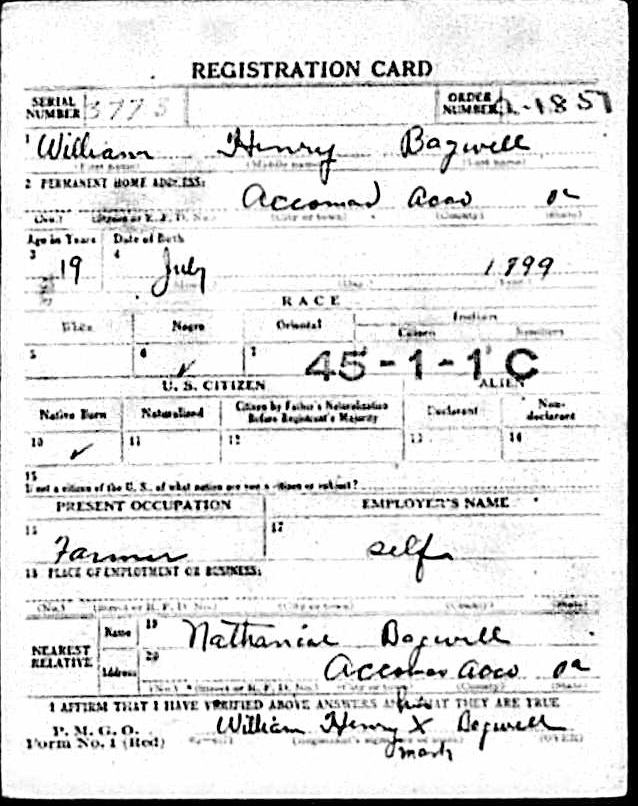 REGISTRATION CARD
SERIAL NUMBER 3775 ORDER NUMBER A-1857
1 William Henry Bagwell
(First name) (Middle name) (Last name)
2 PERMANENT HOME ADDRESS:
Accomac Acco Va
(No.) (Street or R. F. D. No.) (City or town) (County) (State)
Age in Years Date of Birth
3 19 4 July 1899
RACE
White Negro Oriental Indian
Citizen
5 6 ✓ 7 45-1-1 C
U. S. CITIZEN ALIEN
Native Born Naturalized Citizen by Father's Naturalization Before Registrant's Majority Declarant Non-declarant
10 ✓ 11 12 13 14
15
If not a citizen of the U. S., of what nation are you a citizen or subject?
PRESENT OCCUPATION EMPLOYER'S NAME
16 Farmer 17 self
18 PLACE OF EMPLOYMENT OR BUSINESS:
(No.) (Street or R. F. D. No.) (City or town) (County) (State)
NEAREST RELATIVE Name 19 Nathaniel Bagwell
Address 20 Accomac Acco Va
(No.) (Street or R. F. D. No.) (City or town) (County) (State)
I AFFIRM THAT I HAVE VERIFIED ABOVE ANSWERS AND THAT THEY ARE TRUE
his
P. M. G. O.
Form No. 1 (Red) William Henry X Bagwell
mark (OVER)